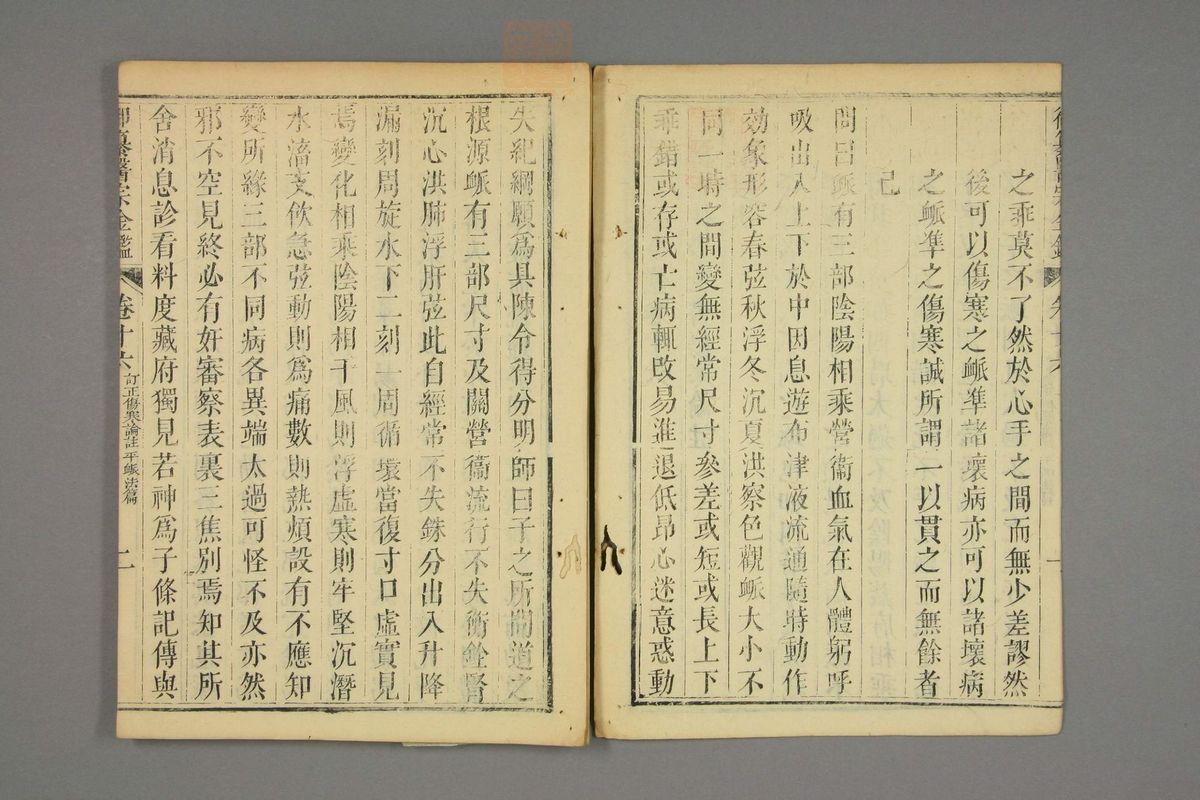 之乖莫不了然於心手之間而無少差謬然
後可以傷寒之脈準諸壞病亦可以諸壞病
之脈準之傷寒誠所謂一以貫之而無餘者
已
問曰脈有三部陰陽相乘營衞血氣在人體躬呼
吸出入上下於中因息遊布津液流通隨時動作
効象形容春弦秋浮冬沉夏洪察色觀脈大小不
同一時之間變無經常尺寸參差或短或長上下
乖錯或存或亡病輒改易進退低昂心迷意惑動
失紀綱願爲具陳令得分明師曰子之所問道之
根源脈有三部尺寸及關營衞流行不失衡銓腎
沉心洪肺浮肝弦此自經常不失銖分出入升降
漏刻周旋水下二刻一周循環當復寸口虛實見
焉變化相乘陰陽相干風則浮虛寒則牢堅沉潛
水滀支飲急弦動則爲痛數則熱煩設有不應知
變所緣三部不同病各異端太過可怪不及亦然
邪不空見終必有奸審察表裏三焦別焉知其所
舍消息診看料度藏府獨見若神爲子條記傳與
御纂醫宗金鑑 卷十六 訂正傷寒論註 平脈法篇 二